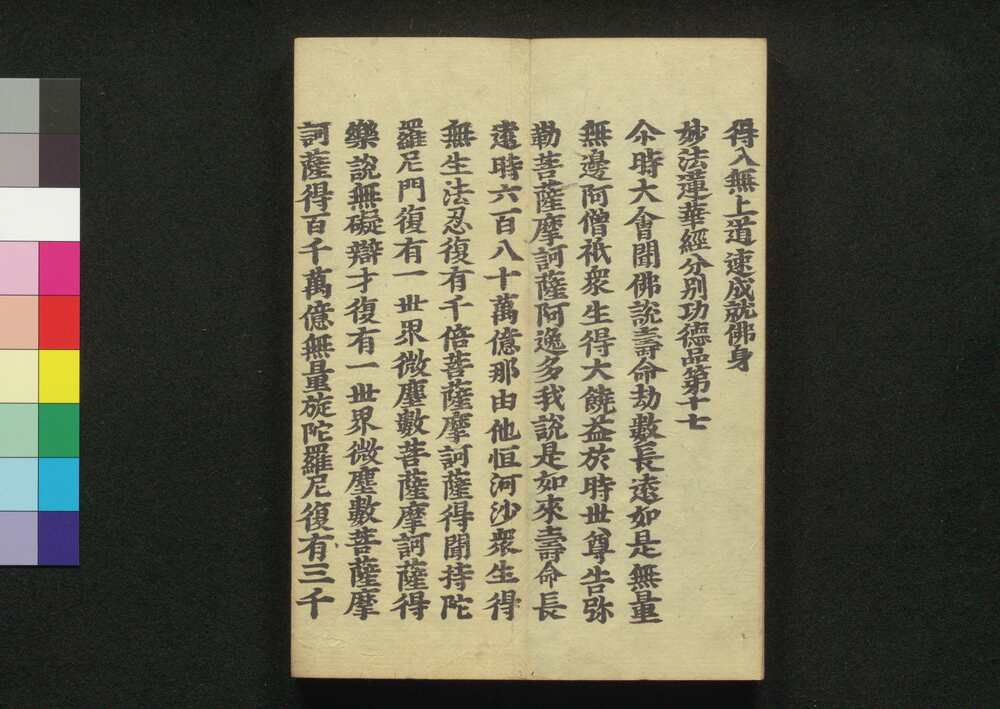 得入無上道速成就佛身
妙法蓮華經分別功德品第十七
尒時大會聞佛說壽命劫數長遠如是無量
無邊阿僧祇衆生得大饒益於時世尊告弥
勒菩薩摩訶薩阿逸多我說是如來壽命長
遠時六百八十萬億那由他恒河沙衆生得
無生法忍復有千倍菩薩摩訶薩得聞持陀
羅尼門復有一世界微塵數菩薩摩訶薩得
樂說無礙辯才復有一世界微塵數菩薩摩
訶薩得百千萬億無量旋陀羅尼復有三千